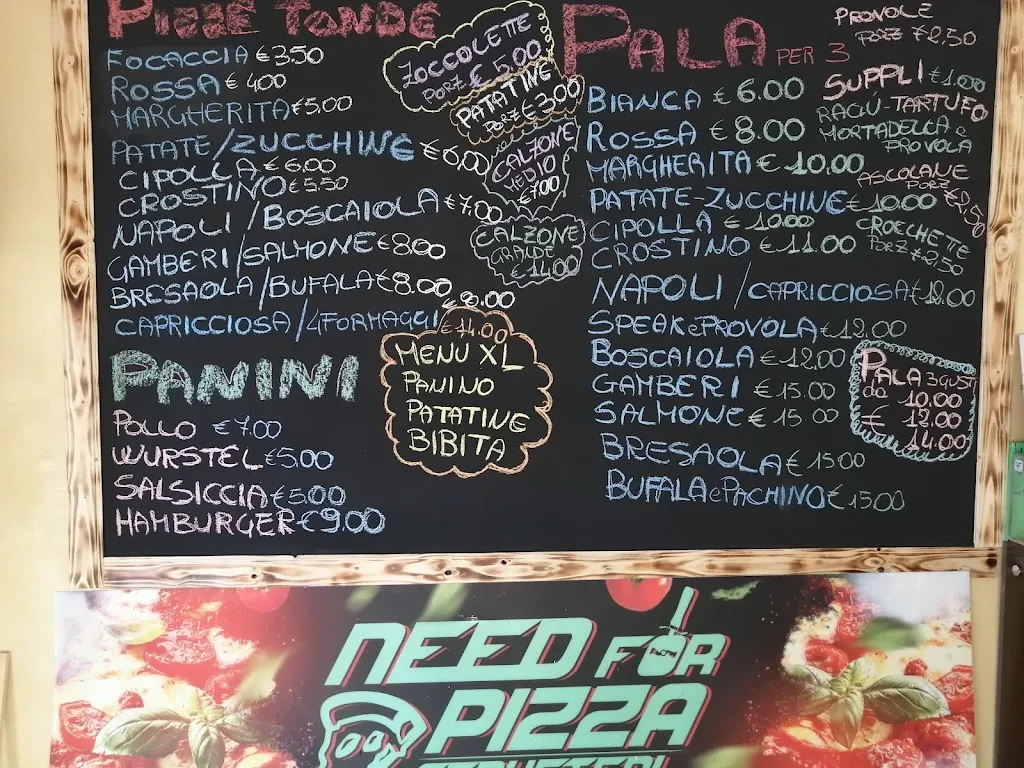 PIZZE TONDE
FOCACCIA €3.50
ROSSA €4.00
MARGHERITA €5.00
PATATE/ZUCCHINE €6.00
CIPOLLA €6.00
CROSTINO €5.50
NAPOLI/BOSCAIOLA €7.00
GAMBERI/SALMONE €8.00
BRESAOLA/BUFALA €8.00
CAPRICCIOSA/4FORMAGGI €8.00
PANINI
POLLO €7.00
WURSTEL €5.00
SALSICCIA €5.00
HAMBURGER €9.00
ZOCCOLETTE
PORZ € 5.00
PATATINE
PORZ € 3.00
CALZONE
MEDIO
€7.00
CALZONE
GRANDE
€14.00
€14.00
MENU XL
PANINO
PATATINE
BIBITA
PALA PER 3
BIANCA € 6.00
ROSSA € 8.00
MARGHERITA € 10.00
PATATE-ZUCCHINE € 10.00
CIPOLLA € 10.00
CROSTINO € 11.00
NAPOLI/CAPRICCIOSA €12.00
SPEAK e PROVOLA €12.00
BOSCAIOLA €12.00
GAMBERI € 15.00
SALMONE € 15.00
BRESAOLA € 15.00
BUFALA e PACHINO € 15.00
PROVOLE
PORZ €2,50
SUPPLI €1.00
RAGÙ-TARTUFO
MORTADELLA e
PROVOLA
ASCOLANE
PORZ €2,50
CROCCHETTE
PORZ €2.50
PALA 3 GUSTI
da 10.00
€ 12.00
14.00
NEED FOR
PIZZA